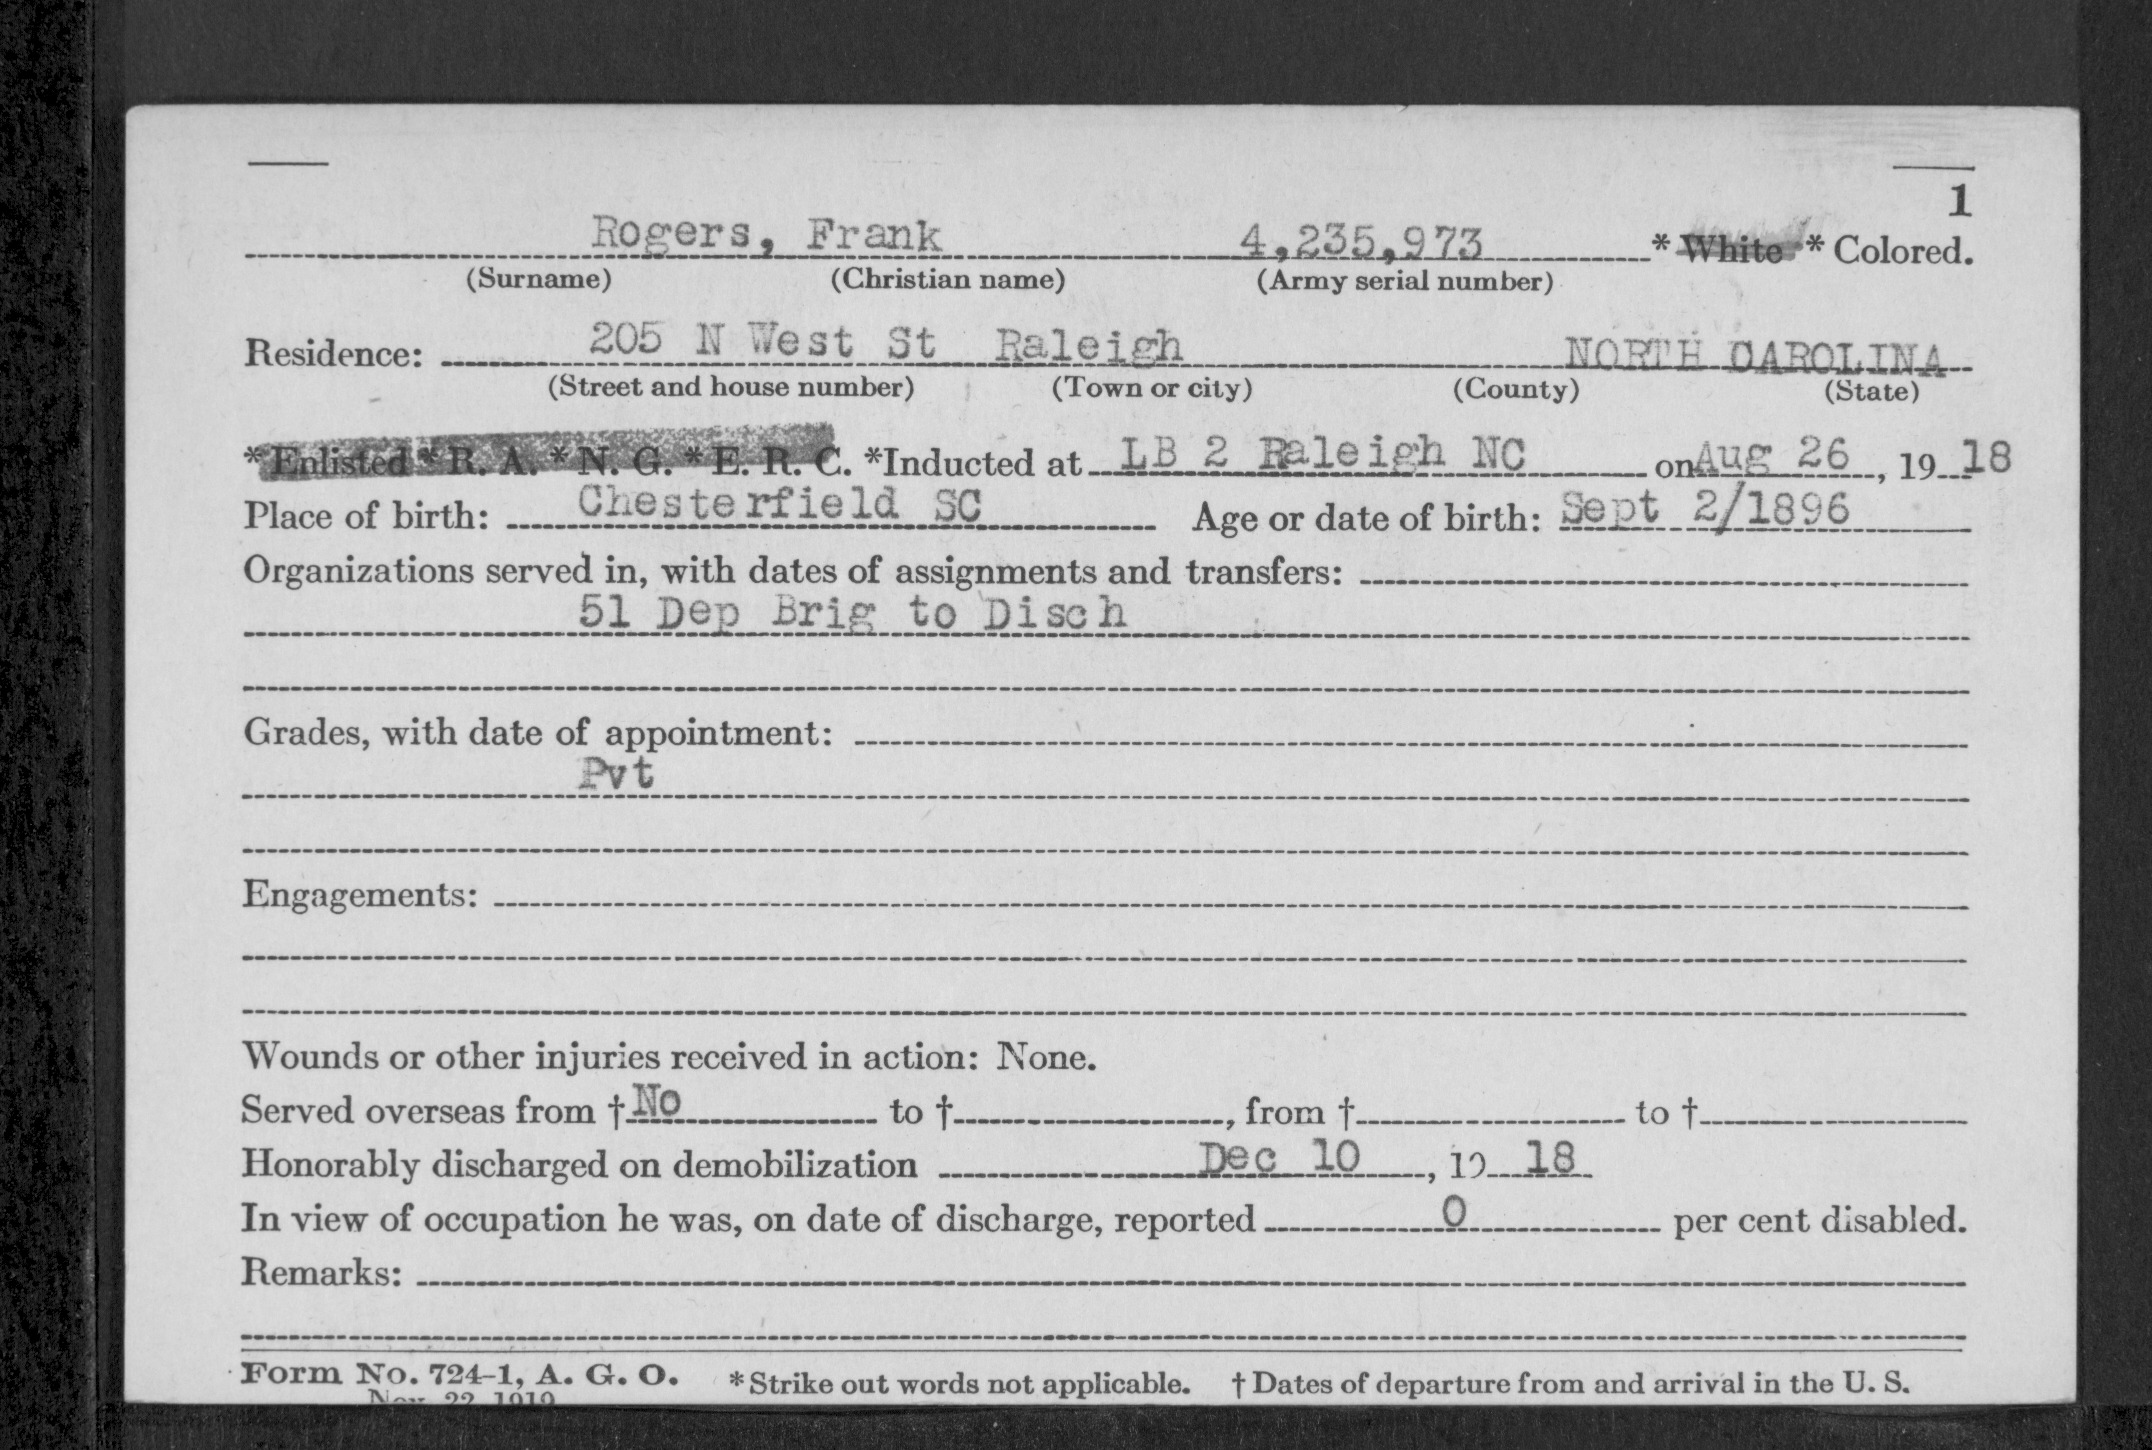 1
Rogers, Frank 4,235,973 * White * Colored.
(Surname) (Christian name) (Army serial number)
Residence: 205 N West St Raleigh NORTH CAROLINA
(Street and house number) (Town or city) (County) (State)
* Enlisted * R. A. * N. G. * E. R. C. *Inducted at LB 2 Raleigh NC on Aug 26, 19 18
Place of birth: Chesterfield SC Age or date of birth: Sept 2/1896
Organizations served in, with dates of assignments and transfers:
51 Dep Brig to Disch
Grades, with date of appointment:
Pvt
Engagements:
Wounds or other injuries received in action: None.
Served overseas from † No to †, from † to †
Honorably discharged on demobilization Dec 10, 19 18
In view of occupation he was, on date of discharge, reported 0 per cent disabled.
Remarks:
Form No. 724-1, A. G. O. * Strike out words not applicable. † Dates of departure from and arrival in the U. S.
Nov. 22, 1919